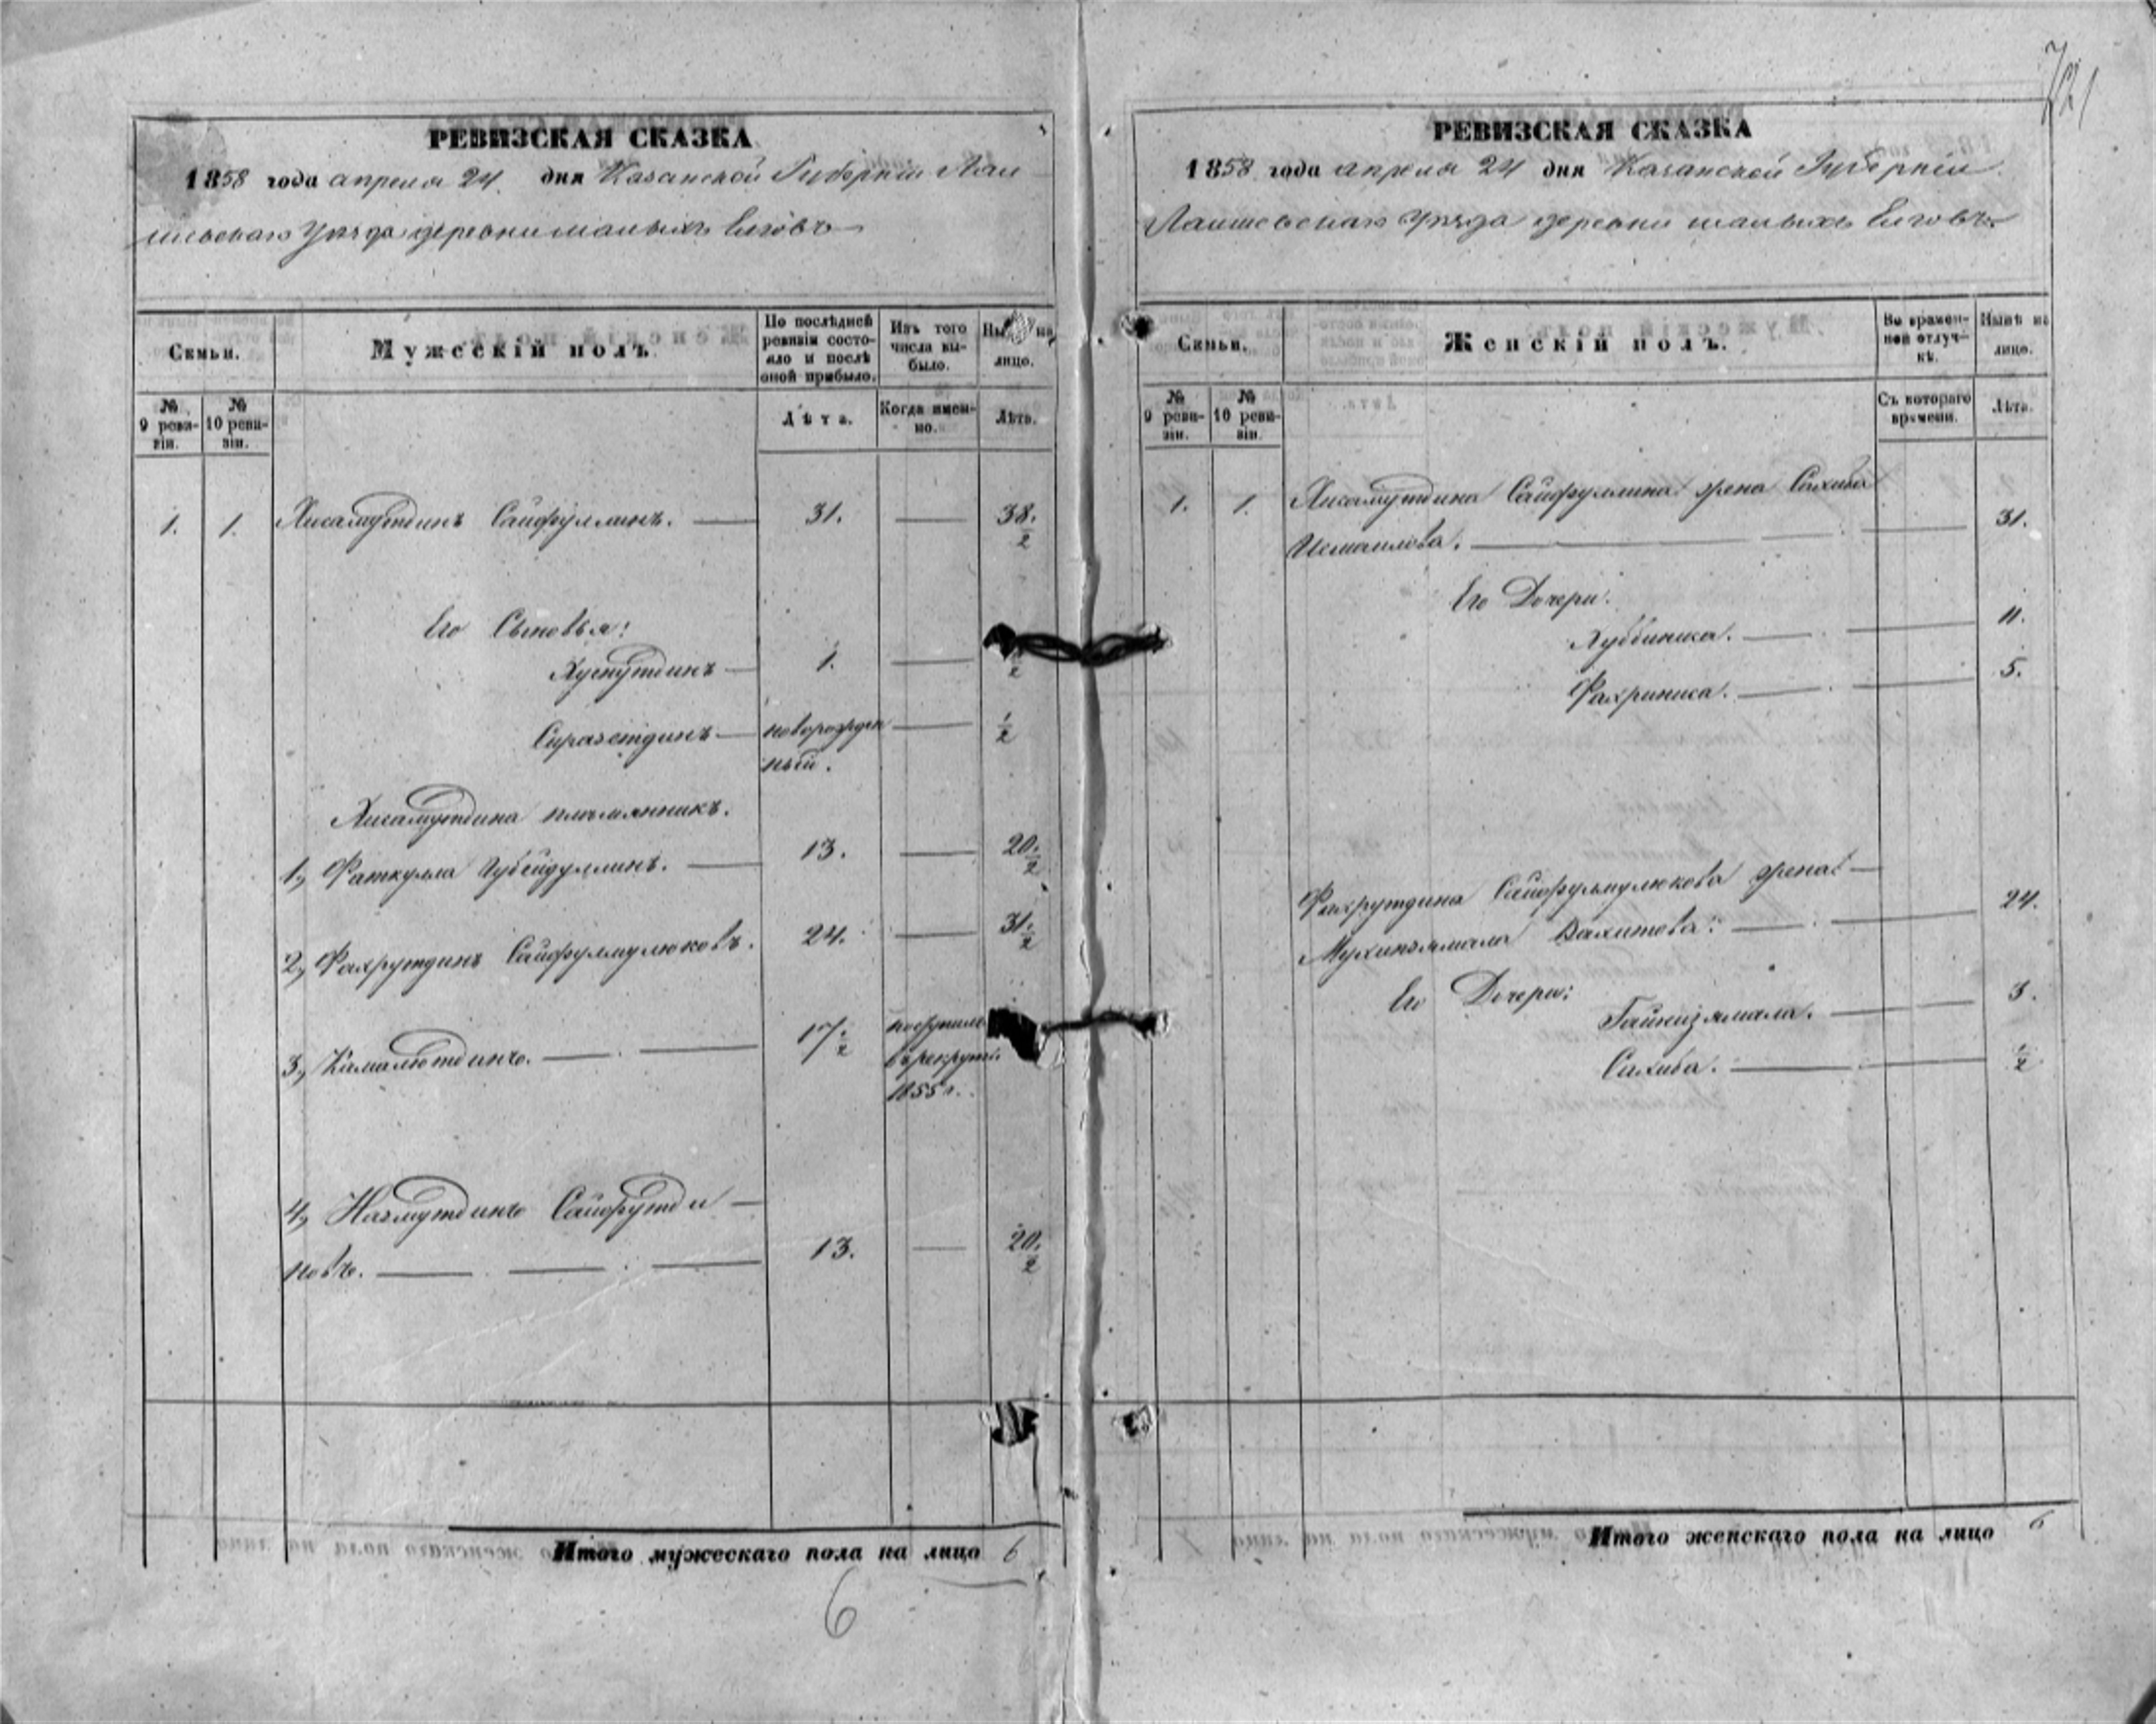 721
РЕВИЗСКАЯ СКАЗКА
1858 года апреля 24 дня Казанской Губернии Лаи
шевскаго Уѣзда деревни малыхъ Елговъ
Семьи.
Мужескій полъ.
По послѣдней ревизіи состояло и послѣ оной прибыло.
Изъ того числа выбыло.
Нынѣ на лицо.
№ 9 ревизіи.
№ 10 ревизіи.
Лѣта.
Когда именно.
Лѣта.
1. 1. Хисамутдинъ Сайфуллинъ. 31. 38. 1/2
Его Сыновья:
Хуснутдинъ 1. 1/2
Сиразетдинъ новорожден 1/2
ный.
Хисамутдина племянникъ.
1, Фаткулла Губейдуллинъ. 13. 20. 1/2
2, Фахрутдинъ Сайфулмулюковъ. 24. 31. 1/2
3, Камалютдинъ. 17 1/2 поступилъ
в рекруты
1855 г.
4, Назмутдинъ Сайфутди
новъ. 13. 20. 1/2
Итого мужескаго пола на лицо 6
6
РЕВИЗСКАЯ СКАЗКА
1858 года апреля 24 дня Казанской Губерніи
Лаишевскаго Уѣзда деревни малыхъ Елговъ
Семьи.
Женскій полъ.
Во временной отлучкѣ.
Нынѣ на лицо.
№ 9 ревизіи.
№ 10 ревизіи.
Съ котораго времени.
Лѣта.
1. 1. Хисамутдина Сайфуллина жена Сахиба
Исмаилова. 31.
Его Дочери.
Хуббиниса. 11.
Фахриниса. 5.
Фахрутдина Сайфулмулюкова жена
Мухинзямала Вахитова: 24.
Его Дочери:
Гайнизямала. 3.
Сахиба. 1/2
Итого женскаго пола на лицо 6